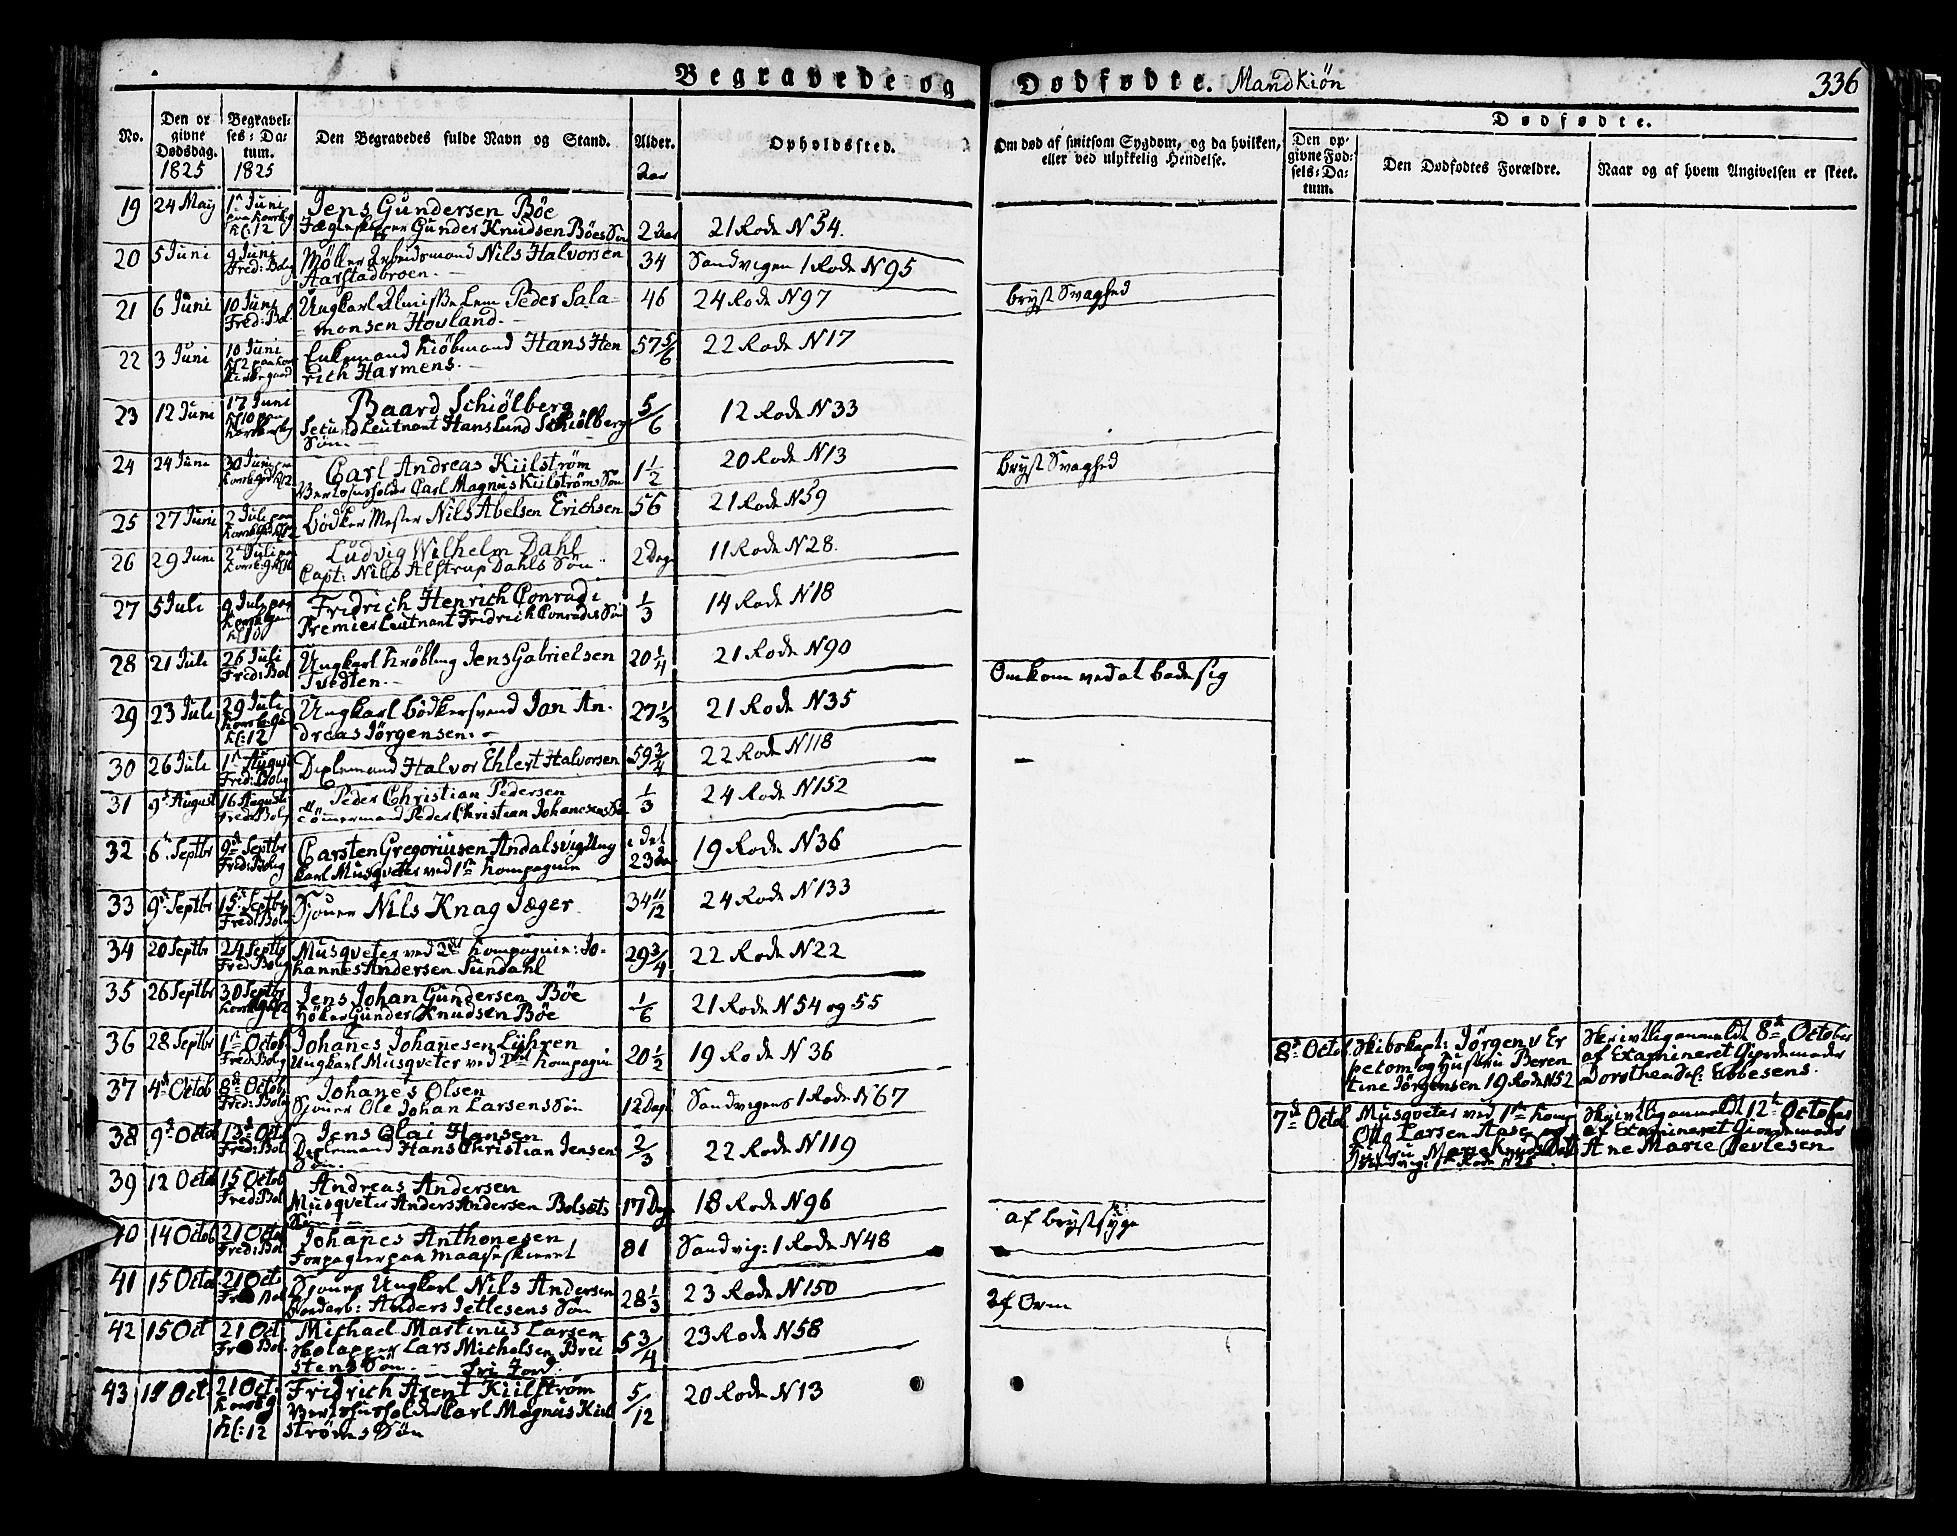 Begravede og Dødfødte. Mandkiön
336
No.
Den opgivne Dødsdag. 1825
Begravelses-Datum. 1825
Den Begravedes fulde Navn og Stand.
Alder. Aar
Opholdssted.
Om død af smitsom Sygdom, og da hvilken, eller ved ulykkelig Hendelse.
Dødfødte.
Den opgivne Fødsels-Datum.
Den Dødfødtes Forældre.
Naar og af hvem Angivelsen er skeet.
19 24 May 1 Juni Kl: 12 Jens Gundersen Böe
Gunder Knudsen Böes Sön 2 Aar 21 Rode N 54.
20 5 Juni 9 Juni Fred: Bolg Nils Halvorsen
Aarstadbroen. 34 Sandvigen 1 Rode N 95
21 6 Juni 10 Juni Fred: Bol Ungkarl Lem Peder Sala-
monsen Hovland. 46 24 Rode N 97 bryst Svaghed
22 3 Juni 10 Juni Enkemand Kiöbmand Hans Hen
rich Harmens. 57 5/6 22 Rode N 17
23 12 Juni 17 Juni Baard Schiölberg
Secund Leutnant Hans Lund Schiölbergs
Sön. 5/6 12 Rode N 33
24 24 Juni 30 Juni Carl Andreas Kiilström
Carl Magnus Kiilströms Sön 1 1/2 20 Rode N 13 bryst Svaghed
25 27 Juni 2 Juli bödker Mester Nils Abelsen Erichsen 56 21 Rode N 59
26 29 Juni 2 Juli Ludvig Wilhelm Dahl
Capt: Nils Alstrup Dahls Sön 2 Dage 11 Rode N 28.
27 5 Juli 9 Juli Kl 10 Fridrich Henrich Conradi
Premier Leutnant Fridrich Conradis Sön 1/3 14 Rode N 18
28 21 Juli 26 Juli Fred: Bol Ungkarl Jens Gabrielsen
Tvedten. 20 1/4 21 Rode N 90 Omkom ved at bade sig
29 23 Juli 29 Juli Kl: 12 Ungkarl bödkersvend Jan An-
dreas Jörgensen. 27 1/3 21 Rode N 35
30 26 Juli 1 August Fred: Bolg Halvor Ehlert Halvorsen 59 3/4 22 Rode N 118
31 9 August 16 Augusti Fred: Bolg Peder Christian Pedersen
Tömmermand Peder Christian Johanesens Sön 1/3 24 Rode N 152
32 6 Septbr 9 Septbr Fred: Bolg Carsten Gregoriusen Andalsvig Ung
karl Musqveter ved 1 kompagnie i det 23 Aar 19 Rode N 36
33 9 Septbr 15 Septbr Fred: Bolg Sjouer Nils Knag Jæger 34 11/12 24 Rode N 133
34 20 Septbr 24 Septbr Fred: Bolg Musqveter ved 2 kompagnie: Jo-
hannes Andersen Sundahl 29 3/4 22 Rode N 22
35 26 Septbr 30 Septbr Jens Johan Gundersen Böe
höker Gunder Knudsen Böe 1/6 21 Rode N 54 og 55
36 28 Septbr 1 Octob Fred: Bolg Johanes Johanesen Lyhren
Ungkarl Musqveter ved kompagnie 20 1/2 19 Rode N 36
8 Octob Skibskapt: Jörgen v Er
petom og Hustru Beren
tine Jörgensen 19 Rode N 52
Skrivtlig anmeldt 8 October
af Examineret Giordemoder
Dorothea Ebbesens.
37 4 Octob 8 Octob Fred: Bolg Johanes Olsen
Sjouer Ole Johan Larsens Sön 12 Dage Sandvigens 1 Rode N 67
38 9 Octob 13 Oct Fred: Bol Jens Olai Hansen
Hans Christian Jensens
Sön. 2/3 22 Rode N 119
7 Octob Musqveter ved 1 komp
Otto Larsen Aase og
Hustru Maren
Sandvig: 1 Rode N 25
Skrivtlig anmeldt 12 October
af Examineret Giordemoder
Ane Marie Devlesen
39 12 Octob 15 Octob Fred: Bol Andreas Andersen
Musqveter Anders Andersen Bolsets
Sön 17 Dage 18 Rode N 96
40 14 Octob 21 Octob Fred: Bol Johanes Anthonesen
81 Sandvig: 1 Rode N 48 af brystsyge
41 15 Octob 21 Oct Fred Bol Sjouer Ungkarl Nils Andersen
Anders Jetlesens Sön 28 1/3 23 Rode N 150 Af Orm
42 15 Oct 21 Oct Fred Bol Michael Martinus Larsen
Lars Michelsen Brei
stens Sön. fri Jord. 5 3/4 23 Rode N 58
43 Oct. 21 Oct. Kl: 12 Fridrich Arent Kiilström
Carl Magnus Kiil
ströms Sön 5/12 20 Rode N 13